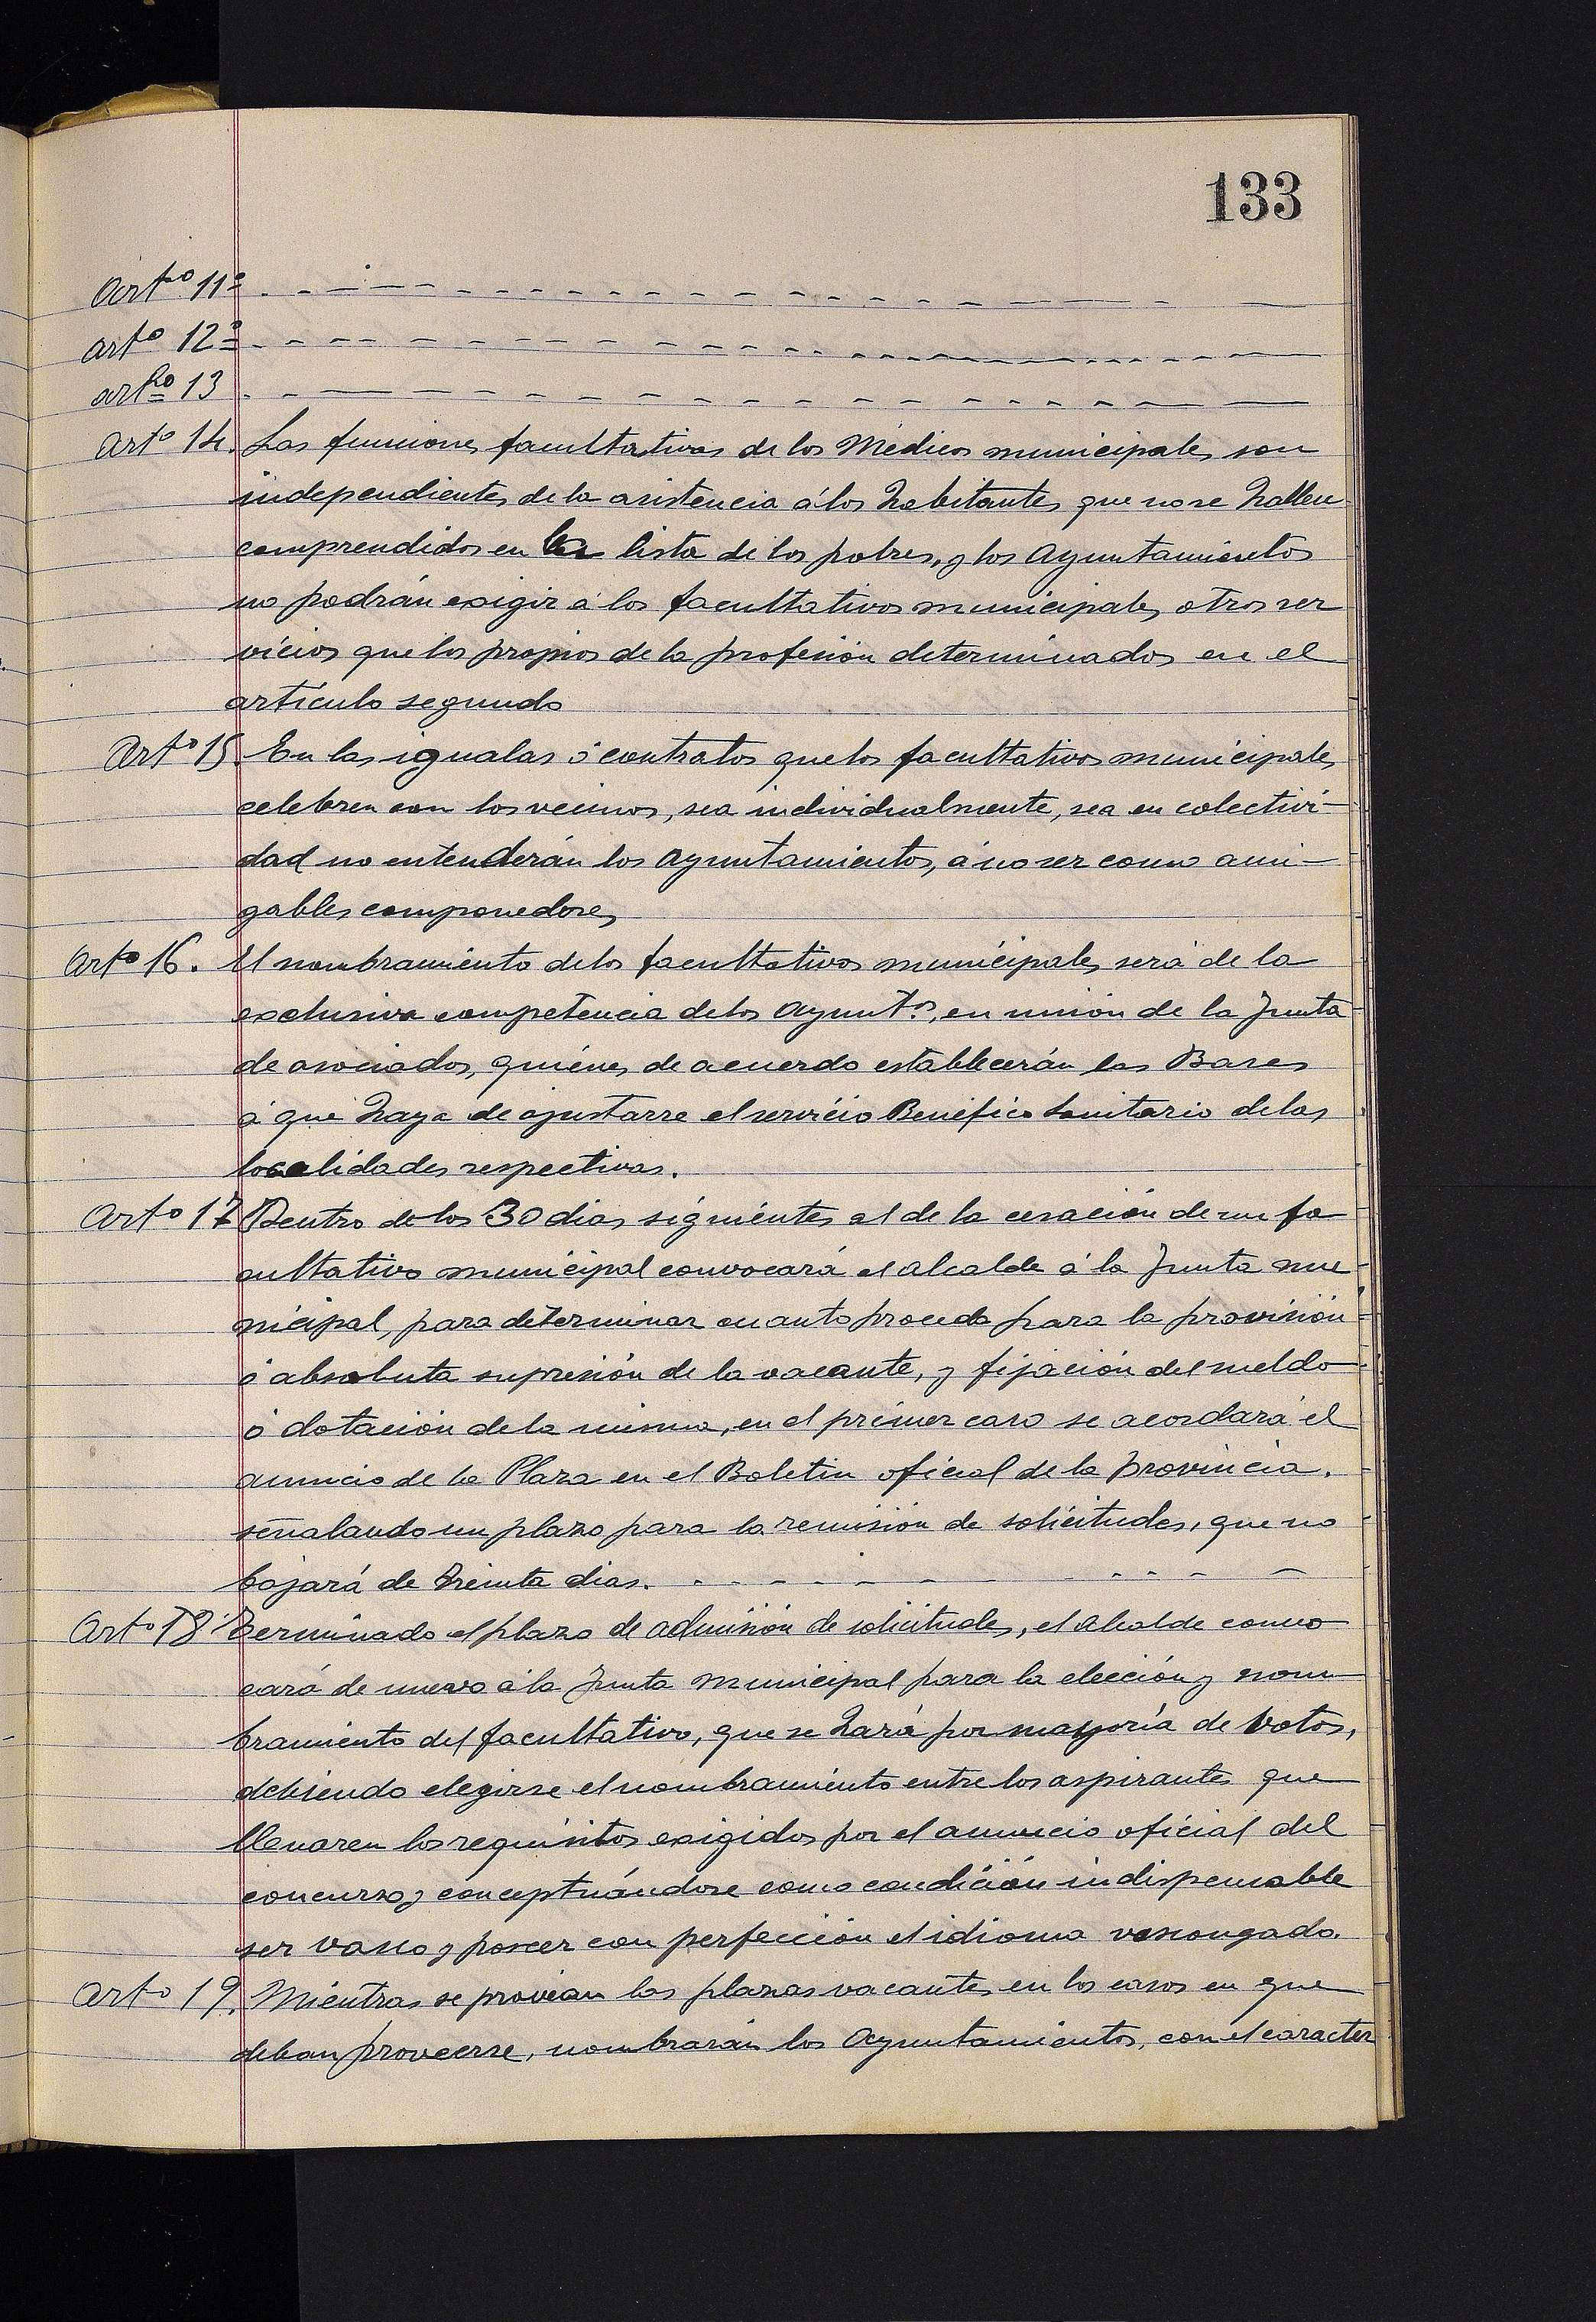 133
Artº 11º
artº 12º
artº 13
artº 14. Las funciones facultativas de los Médicos municipales son
independientes de la asistencia á los habitantes que no se hallen
comprendidos en la lista de los pobres, y los Ayuntamientos
no podrán exigir á los facultativos municipales otros ser
vicios que los propios de la profesión determinados en el
artículo segundo
Artº 15 En las igualas ó contratos que los facultativos municipales
celebren con los vecinos, sea individualmente, sea en colectivi-
dad no entenderán los Ayuntamientos, á no ser como ami-
gables componedores
Artº 16. El nombramiento de los facultativos municipales será de la
exclusiva competencia de los Ayunt.os, en unión de la Junta
de asociados, quiénes de acuerdo establecerán las Bases
á que haya de ajustarse el servicio Benéfico Sanitario de las
localidades respectivas.
Artº 17 Dentro de los 30 dias siguientes al de la cesación de un fa
cultativo municipal convocará el alcalde á la Junta mu
nicipal, para determinar cuanto proceda para la provisión
ó absoluta supresión de la vacante, y fijación del sueldo
ó dotación de la misma, en el primer caso se acordará el
anuncio de la Plaza en el Boletin oficial de la provincia.
señalando un plazo para la remisión de solicitudes, que no
bajará de treinta dias.
Artº 18 Terminado el plazo de admisión de solicitudes, el Alcalde convo
cará de nuevo á la Junta municipal para la elección y nom
bramiento del facultativo, que se hará por mayoría de votos,
debiendo elegirse el nombramiento entre los aspirantes que
llenaren los requisitos exigidos por el anuncio oficial del
concurso y conceptuándose como condición indispensable
ser vasco y poseer con perfección el idioma vascongado.
Artº 19. Mientras se provéan las plazas vacantes en los casos en que
deban proveerse, nombrarán los Ayuntamientos, con el caracter